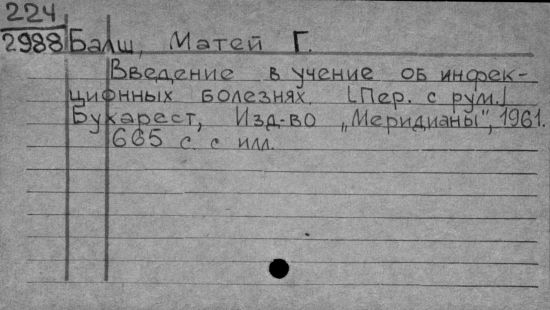 224
2988 Балш, Матей Г.
Введение в учение об инфек-
ционных болезнях. [Пер. с рум.]
Бухарест, Изд-во „Меридианы", 1961.
665 с. с илл.